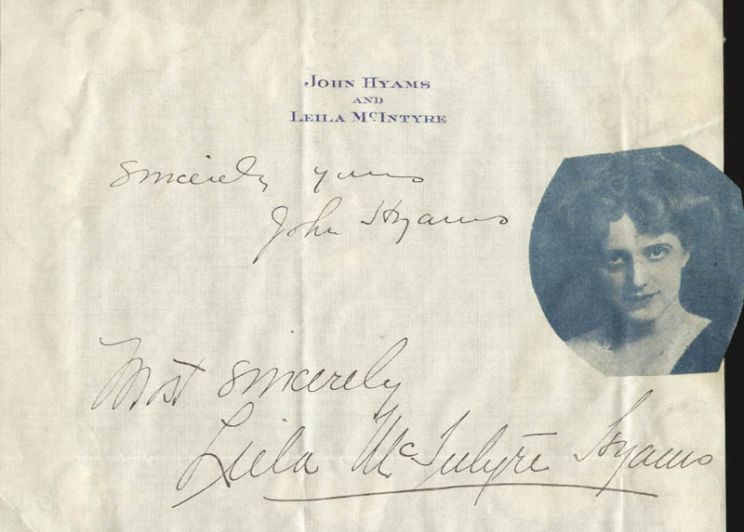 JOHN HYAMS
AND
LEILA McINTYRE
Sincerely yours
John Hyams
Most sincerely
Leila McIntyre Hyams